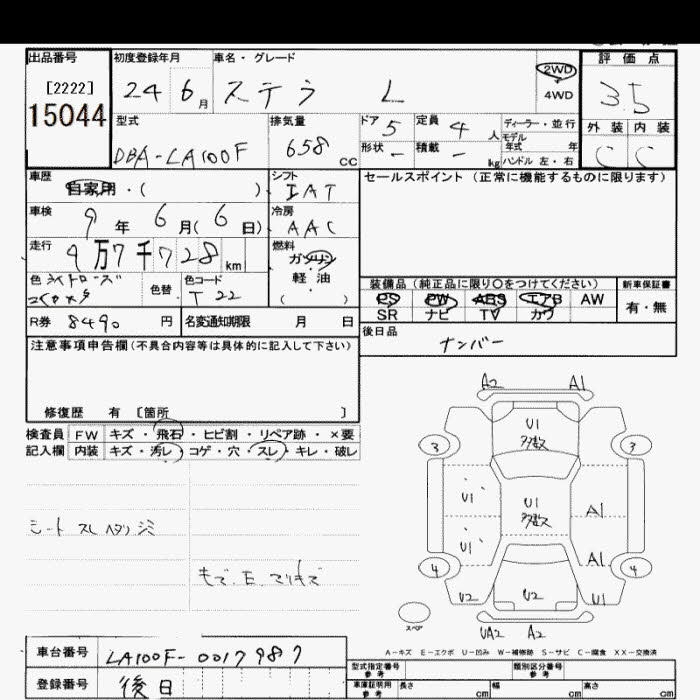 出品番号
[2222]
15044
初度登録年月
24 6月
車名・グレード
ステラ L
2WD
4WD
評価点
3.5
外装 内装
C C
型式
DBA-LA100F
排気量
658 CC
ドア 5
定員 4 人
形状 -
積載 - kg
ディーラー・並行
モデル
年式 年
ハンドル 左・右
車歴
自家用・( )
シフト
IAT
車検
9年 6月(6日)
冷房
AAC
走行
9万7千728km
燃料
ガソリン
軽・油
( )
色
色替
色コード
T22
R券 8490円
名変通知期限 月 日
セールスポイント (正常に機能するものに限ります)
装備品 (純正品に限り○をつけてください)
新車保証書
PS PW ABS エアB AW
SR ナビ TV カワ
有・無
後日品
ナンバー
注意事項申告欄(不具合内容等は具体的に記入して下さい)
修復歴 有 [箇所 ]
検査員 FW キズ・飛石・ヒビ割・リペア跡・×要
記入欄 内装 キズ・汚レ・コゲ・穴・スレ・キレ・破レ
シート スレ ヘタリ シミ
A2 A1
U1
多数
3 3
U1
U1
多数
A1
U1
A1
4 4
U2 U2 U1
スペア
UA2 A2
A-キズ E-エクボ U-凹み W-補修跡 S-サビ C-腐食 XX-交換済
車台番号
LA100F-0017987
登録番号
後日
型式指定番号
参考
類別区分番号
参考
車庫証明用
参考
長さ cm
幅 cm
高さ cm